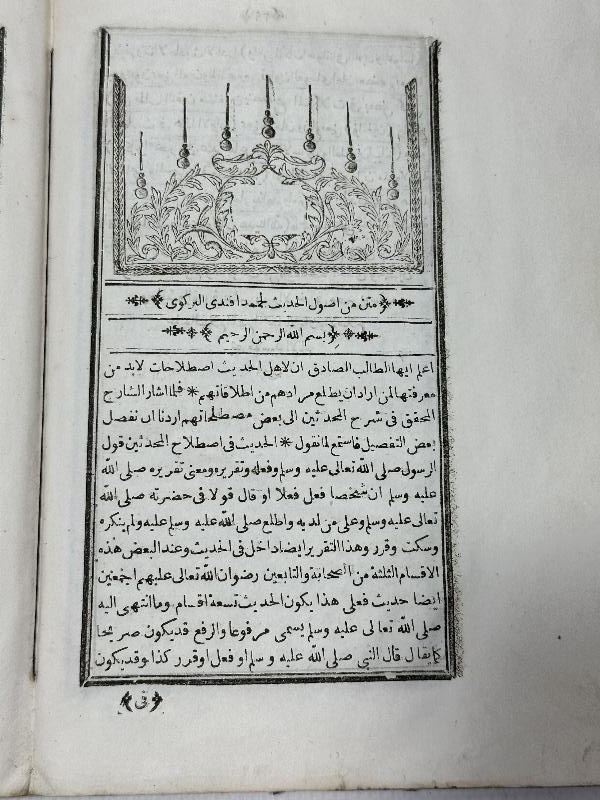 متن من اصول الحديث لمحمد افندى البركوى
بسم الله الرحمن الرحيم
اعلم ايها الطالب الصادق ان لاهل الحديث اصطلاحات لابد من
معرفتها لمن اراد ان يطلع مرادهم من اطلاقاتهم * فلما اشار الشارح
المحقق فى شرح المحدثين الى بعض مصطلحاتهم اردنا ان نفصل
بعض التفصيل فاستمع لما نقول * الحديث فى اصطلاح المحدثين قول
الرسول صلى الله تعالى عليه وسلم وفعله وتقريره ومعنى تقريره صلى الله
عليه وسلم ان شخصا فعل فعلا او قال قولا فى حضرته صلى الله
تعالى عليه وسلم وعلى من لديه واطلع صلى الله عليه وسلم عليه ولم ينكره
وسكت وقرر وهذا التقرير ايضا داخل فى الحديث وعند البعض هذه
الاقسام الثلثة من الصحابة والتابعين رضوان الله تعالى عليهم اجمعين
ايضا حديث فعلى هذا يكون الحديث تسعة اقسام وما انتهى اليه
صلى الله تعالى عليه وسلم يسمى مرفوعا والرفع قد يكون صريحا
كما يقال قال النبى صلى الله عليه وسلم او فعل او قرر كذا وقد يكون
فى